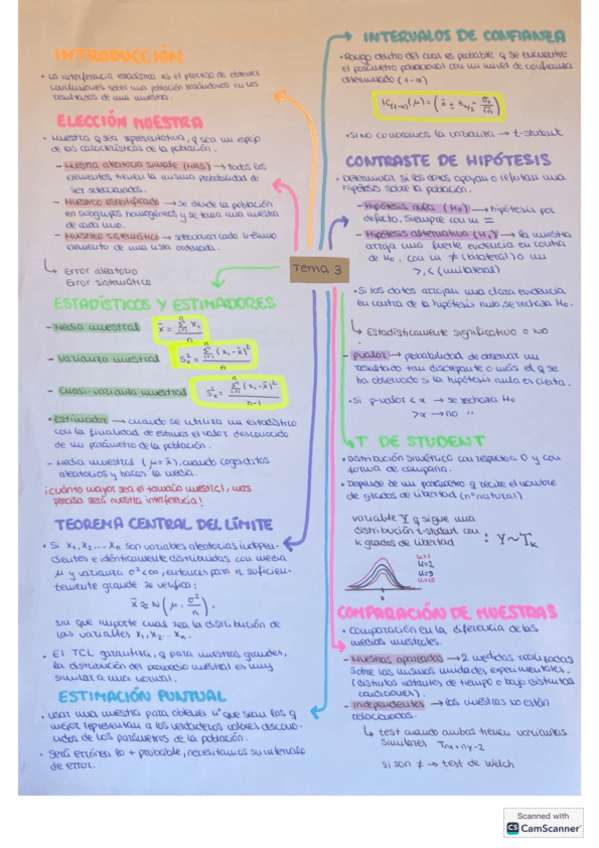 INTRODUCCIÓN
• La interferencia estadística es el proceso de obtener
conclusiones sobre una población basándonos en los
resultados de una muestra.
ELECCIÓN MUESTRA
• Muestra q sea representativa, q sea un espejo
de las características de la población.
- Muestra aleatoria simple (MAS) → todos los
elementos tienen la misma probabilidad de
ser seleccionados.
- Muestreo estratificado → se divide la población
en subgrupos homogéneos y se toma una muestra
de cada uno.
- Muestreo sistemático → seleccionar cada k-ésimo
elemento de una lista ordenada.
↳ Error aleatorio
Error sistemático
ESTADÍSTICOS Y ESTIMADORES
- Media muestral x̄ = Σⁿᵢ₌₁ xᵢ / n
- Varianza muestral Sₓ² = Σⁿᵢ₌₁ (xᵢ - x̄)² / n
- Cuasi-varianza muestral Sₓ² = Σⁿᵢ₌₁ (xᵢ - x̄)² / n-1
• Estimador → cuando se utiliza un estadístico
con la finalidad de estimar el valor desconocido
de un parámetro de la población.
- Media muestral (μ = x̄), cuando cogen datos
aleatorios y haces la media.
¡cuánto mayor sea el tamaño muestral, más
precisa será nuestra inferencia!
TEOREMA CENTRAL DEL LÍMITE
• Si x₁, x₂ ... xₙ son variables aleatorias indepen-
dientes e idénticamente distribuidas con media
μ y varianza σ² con entonces para n suficien-
temente grande se verifica:
x̄ ≈ N (μ, σ²/n),
sin que importe cual sea la distribución de
las variables x₁, x₂ .. xₙ.
• El TCL garantiza, q para muestras grandes,
la distribución del promedio muestral es muy
similar a una normal.
ESTIMACIÓN PUNTUAL
• usar una muestra para obtener nº que sean los q
mejor representan a los verdaderos valores descono-
cidos de los parámetros de la población.
• Será errónea lo + probable, necesitamos su intervalo
de error.
Tema 3
INTERVALOS DE CONFIANZA
• Rango dentro del cual es probable q se encuentre
el parámetro poblacional con un nivel de confianza
determinado (1-α)
IC₍₁₋α₎ (μ) = (x̄ ± z α/2 · σₓ/√n)
• Si no conocemos la varianza → t-student
CONTRASTE DE HIPÓTESIS
• Determinar si los datos apoyan o refutan una
hipótesis sobre la población.
- Hipótesis nula (H₀) → hipótesis por
defecto. Siempre con un =
- Hipótesis alternativa (H₁) → la muestra
arroja una fuerte evidencia en contra
de H₀. con un ≠ (bilateral) o un
>, < (unilateral)
• Si los datos arrojan una clara evidencia
en contra de la hipótesis nula se rechaza H₀.
↳ Estadísticamente significativo o no
- pvalor → probabilidad de observar un
resultado tan discrepante o más el q se
ha observado si la hipótesis nula es cierta.
• Si p-valor < α → se rechaza H₀
> α → no "
T DE STUDENT
• distribución simétrica con respecto a 0 y con
forma de campana.
• Depende de un parámetro q recibe el nombre
de grados de libertad (nº natural)
variable Y q sigue una
distribución t-student con
k grados de libertad : Y ~ Tₖ
COMPARACIÓN DE MUESTRAS
• comparación en la diferencia de las
medias muestrales.
- Muestras apareadas → 2 medidas realizadas
sobre las mismas unidades experimentales.
(distintos instantes de tiempo o bajo distintas
condiciones).
- Independientes → las muestras no están
relacionadas.
↳ test cuando ambas tienen varianzas
similares Tnx+ny-2
si son ≠ → test de Welch
Scanned with
CS CamScanner